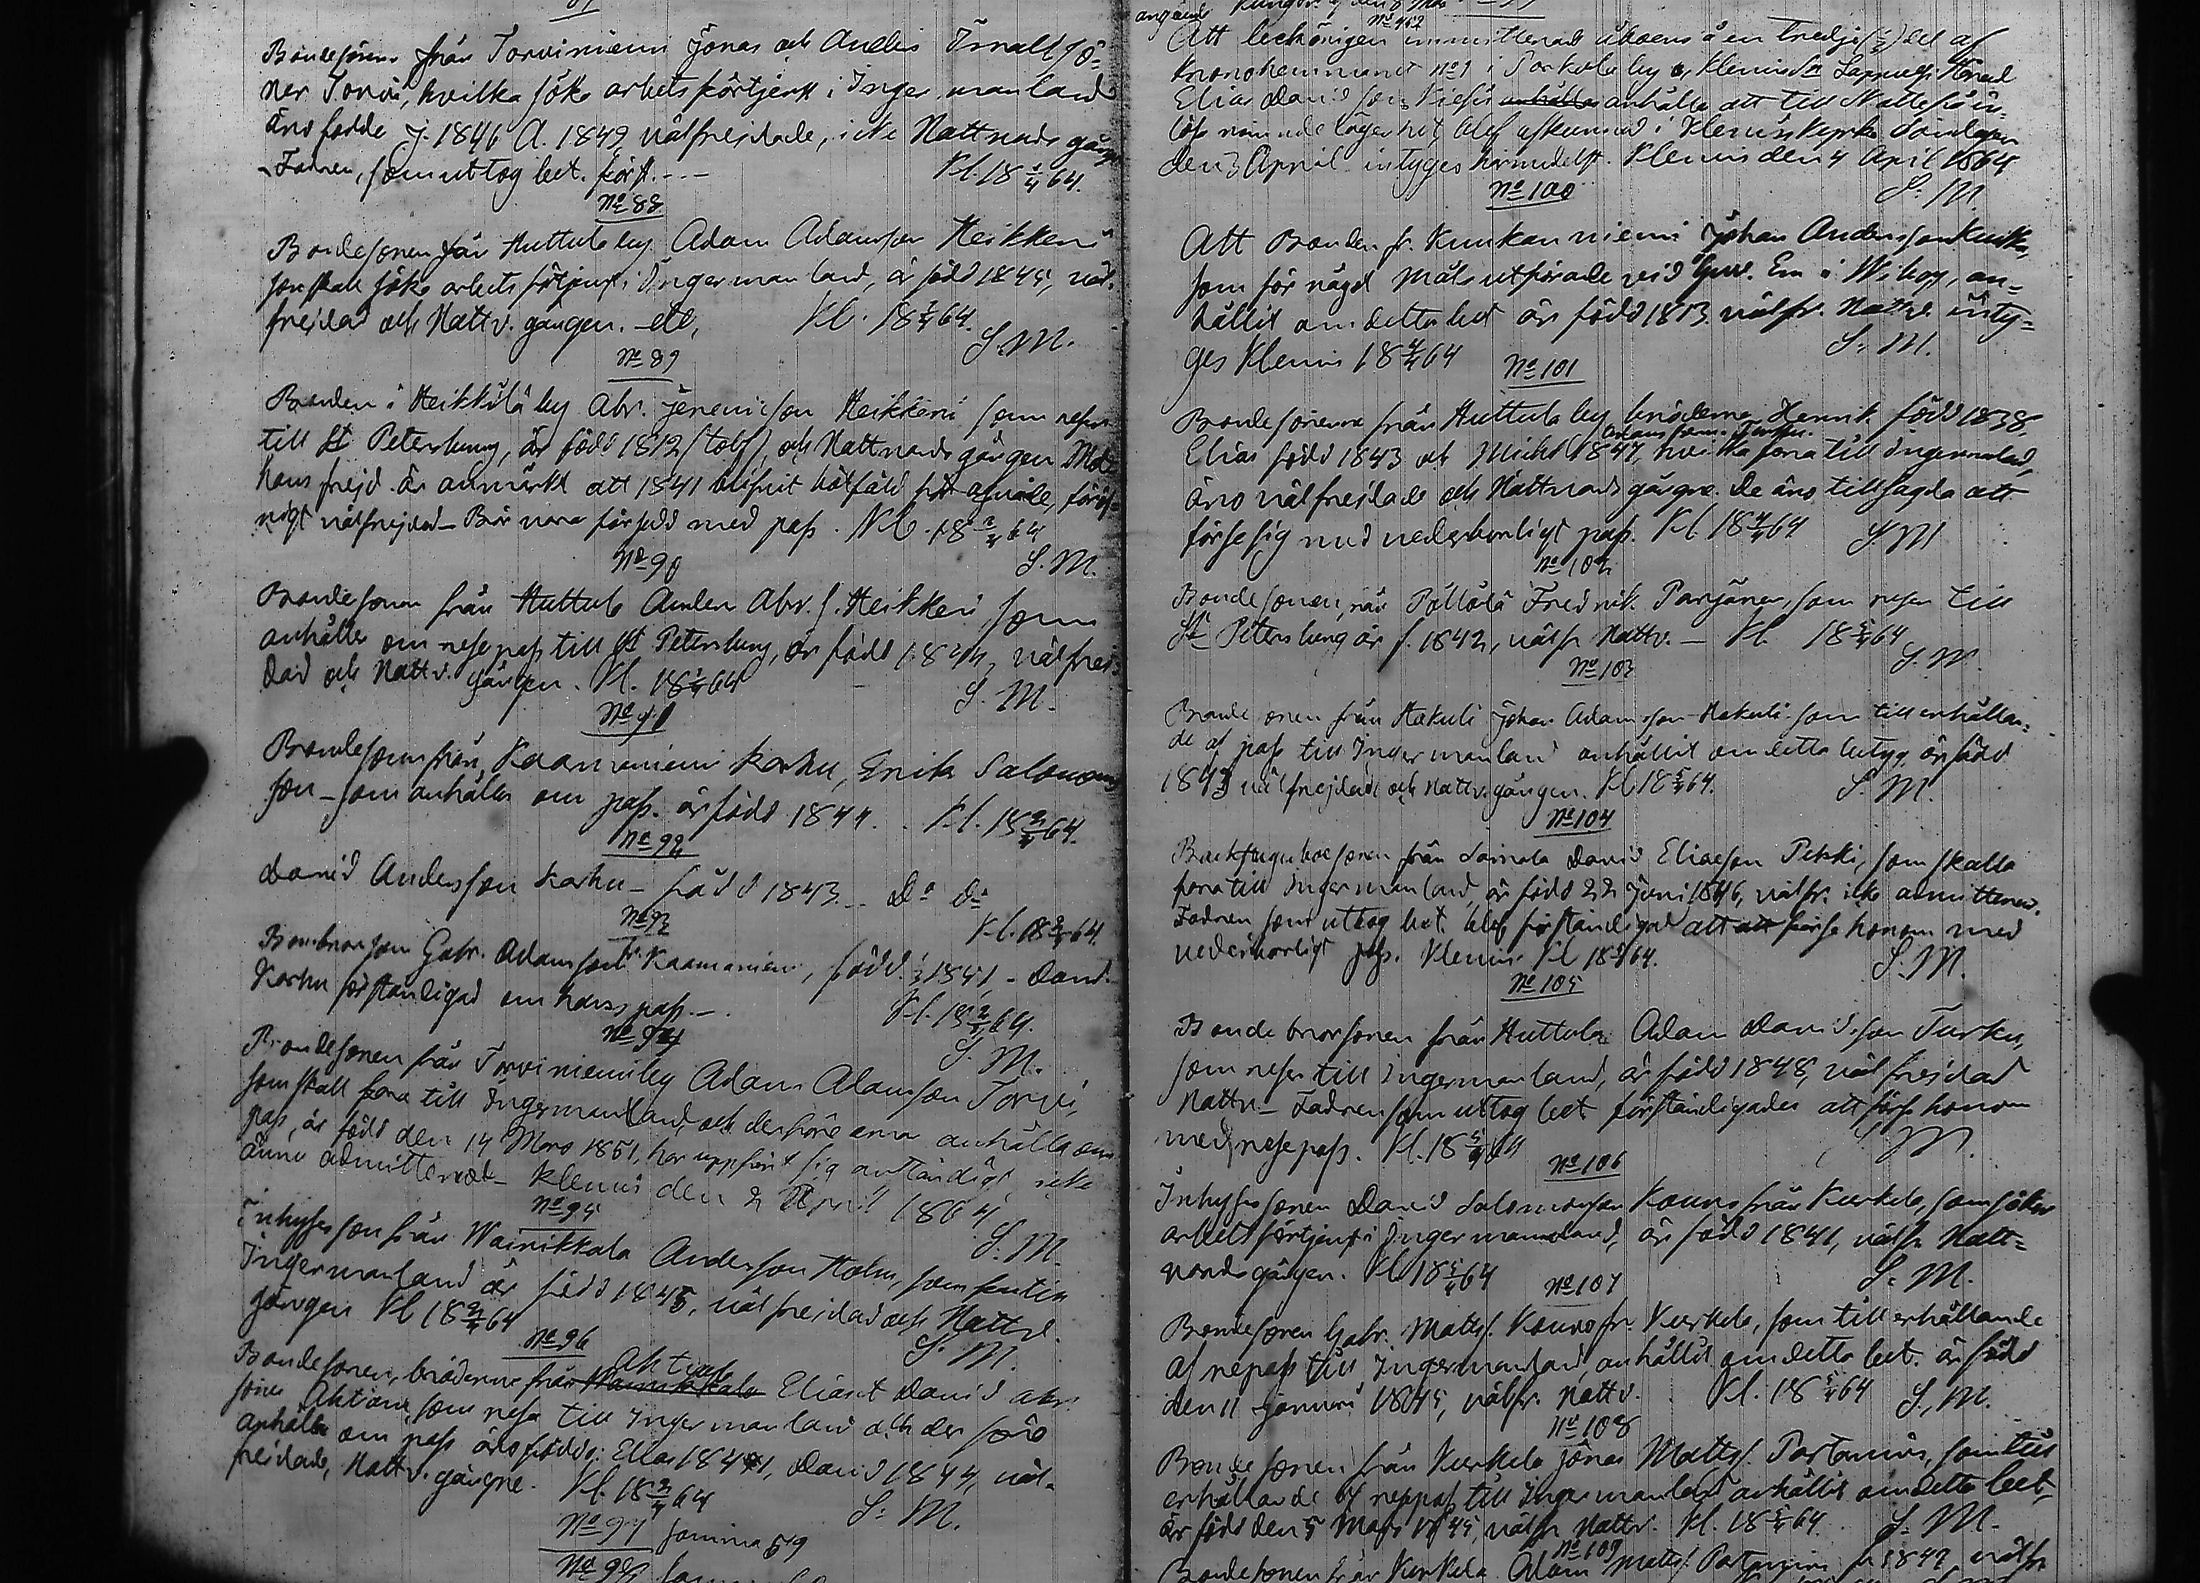 Bondesönerne från Torviniemi Jonas och Anders Israels sö-
ner Torvi, hvilka söka arbetsförtjenst i Ingermanland
äro födde J. 1846 A. 1849, välfrejdade, icke Nattvards gångne
Fadren, som uttog bet. först. - - - Kl. 18 2/4 64.
No 88
Bondesonen från Huttula by Adam Adamsson Heikken
som skall söka arbetsförtjenst i Ingermanland, är född 1845, väl-
frejdad och Nattv. gången. - etc, Kl. 18 2/4 64.
S. M.
No 89
Bonden i Heikkilä by Abr. Jeremiesson Heikken som reser
till St Petersburg, är född 1812 (tolf), och Nattvards gången
hans frejd är anmärkt att 1841 blifvit bötfäld för öfrigt
välfrejdad - Bör vara försedd med pass. Kl. 18 2/4 64
S. M.
No 90
Bondesonen från Huttula Anders Abr. s. Heikken, som
anhåller om respass till St Petersburg, är född 1844, välfrej-
dad och Nattv. gången. Kl. 18 2/4 64
S. M.
No 91
Bondesonen från Kaarmeniemi Karhu, Erik Salomons
son - som anhåller om pass. är född 1844. Kl. 18 2/4 64.
No 92
David Andersson Karhu - född 1843 - Do Do
Kl. 18 2/4 64.
No 93
Gabr. Adamsson född 1841, - David
Karhu förständigad om hans pass. - Kl. 18 2/4 64.
S. M.
No 94
Bondesonen från Torviniemi by Adam Adamsson Torvi,
som skall fara till Ingermanland, och derföre anhålla om
pass, är född den 14 Mars 1851, har uppfört sig anständigt, icke
ännu admitterad - Klemis den 2 April 1864
S. M.
No 95
Inhyses son från Wainikkala Andersson Holm, som far till
Ingermanland är född 1845, välfrejdad och Nattv.
gången Kl 18 2/4 64
S. M.
No 96
Bondesonen, bröderne från Ahtiala Elias och David Abr.
söner Ahtiain, som resa till Ingermanland och derföre
anhålla om pass äro födde: Elias 1841, David 1844, väl-
frejdade, Nattv. gångne. Kl. 18 2/4 64
S. M.
No 97 Samma 59
No 98
angående
No 462
Att en tredje (1/3) del af
Kronohemmanet No 1 i Sorkola by,
Elias Davidsson anhålla att till
lösa nämnde lägenhet, blef i Klemis Kyrka Söndagen
den 3 April intyges härmedelst. Klemis den 4 April 1864
S. M
No 100
Att Bonden fr. Kuukanniemi Johan Andersson Kuikka,
som för någd Måls utförande vid Guv. Em i Wiborg, an-
hållit om detta bet är född 1813 välfr. Nattv. inty-
ges Klemis 18 4/4 64
S. M.
No 101
Bondesönerne från Huttula by bröderne Henrik född 1838.
Adams söner Turkki
Elias född 1843 och Michel 1847, hvilka fara till Ingermanland,
äro välfrejdade och Nattvards gångne. De äro tillsagda att
förse sig med vederborligt pass. Kl. 18 4/4 64 S. M
No 102
Bondesonen från Pällölä Fredrik Parjanen, som reser till
St Petersburg är f. 1842, välfr Nattv. - Kl. 18 5/4 64
S. M.
No 103
Bondesonen från Hakuli Johan Adamsson Hakuli som till erhållan-
de af pass till Ingermanland anhållit om detta betyg, är född
1843 välfrejdad och Nattv. gången. Kl 18 5/4 64.
S. M.
No 104
från Sainola David Eliasson Pekki, som skall
fara till Ingermanland, är född 22 Juni 1846, välfr. icke admitterad.
Fadren som uttog bet. blef förständigad att förse honom med
vederborligt pass. Klemis Kl 18 5/4 64.
S. M.
No 105
Bondebrorsonen från Huttula Adam Davidsson Turku,
som reser till Ingermanland, är född 1848, välfrejdad
Nattv - Fadren som uttog bet förständigades att förse honom
med respass. Kl. 18 5/4 64
S. M.
No 106
Inhysessonen David Salomonsson Kouvo från Kurkela, som söker
arbetsförtjenst i Ingermanland, är född 1841, välfr Natt-
vards gången. Kl 18 5/4 64
S. M.
No 107
Bondesonen Gabr. Matts s. Kouvo fr. Kurkela, som till erhållande
af repass till Ingermanland, anhållit om detta bet. är född
den 11 Januari 1845, välfr. Nattv. Kl. 18 5/4 64 S. M.
No 108
Bondesonen från Kurkela Jonas Matts s. Partanen, som till
erhållande af respass till Ingermanland anhållit om detta bet,
är född den 5 Mars 1845, välfr Nattv. Kl. 18 5/4 64. S. M.
No 109
Bondesonen från Kurkela Adam Matts s. Partanen f. 1842 välfr